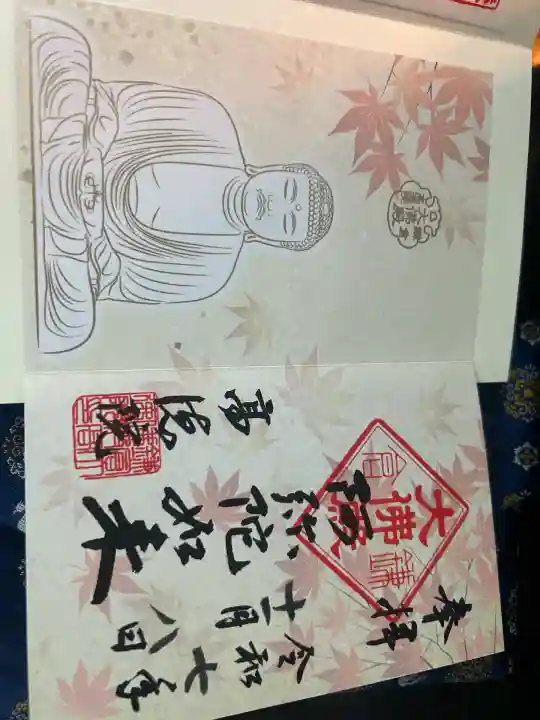 奉拝
令和七年
十一月八日
大佛
鎌倉
阿弥陀如来
高徳院
大佛殿